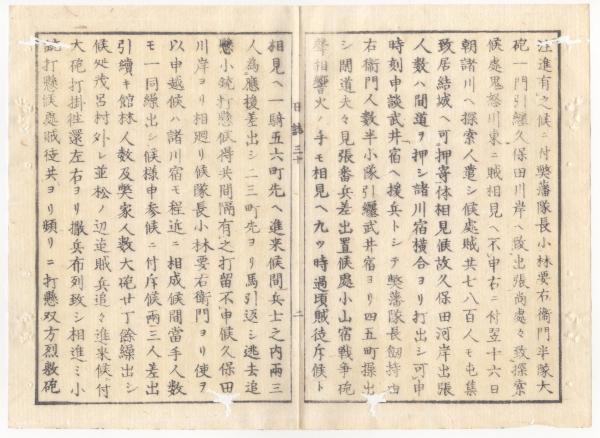 注進有之候ニ付弊藩隊長小林要右衛門半隊大
砲一門引纒久保田川岸ヘ致出張尚處々致探索
候處鬼怒川東ニ賊相見ヘ不申右ニ付翌十六日
朝諸川ヘ探索人遣シ候處賊共七八百人モ屯集
致居結城ヘ可押寄体相見候故久保田河岸出張
人数ハ間道ヲ押シ諸川宿横合ヨリ打出シ可申
時刻申談武井宿ヘ援兵トシテ弊藩隊長劔持
右衛門人数半小隊引纒武井宿ヨリ四五町操出
シ間道夫々見張番兵差出置候處小山宿戦争砲
聲相響火ノ手モ相見ヘ九ツ時過頃賊徒斥候ト
日誌三十
二
相見ヘ一騎五六町先ヘ進来候間兵士之内両三
人為應接差出シ二三町先ヨリ馬引返シ逃去追
懸小銃打懸候得共間隔有之打留不申候久保田
川岸ヨリ相廻リ候隊長小林要右衛門ヨリ使ヲ
以申越候ハ諸川宿モ程近ニ相成候間當手人数
モ一同繰出シ候様申参候ニ付斥候両三人差出
引續キ館林人数及弊家人数大砲廿丁餘繰出シ
候処茂呂村外レ並松ノ辺迠賊兵追々進来候付
大砲打掛往還左右ヨリ撒兵布列致シ相進ミ小
銃打懸候處賊徒共ヨリ頻リニ打懸双方烈敷砲